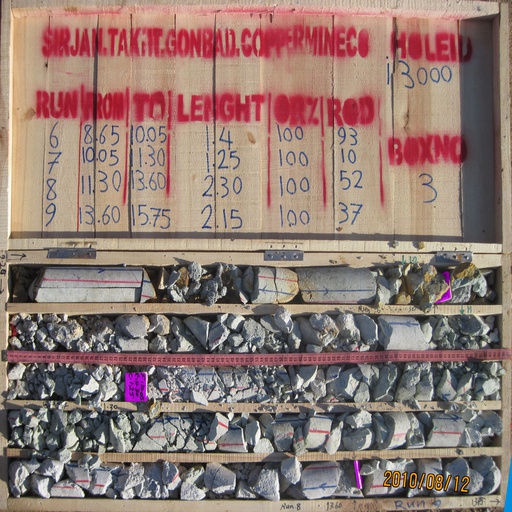 SIRJAN.TAKHT.GONBAD.COPPERMINECO HOLEID
13000
RUN FROM TO LENGHT ORZ ROD
6 8.65 10.05 1.4 100 93
BOXNO
7 10.05 11.30 1.25 100 10
8 11.30 13.60 2.30 100 52
3
9 13.60 15.75 2.15 100 37
2010/08/12
Run 8 13.60